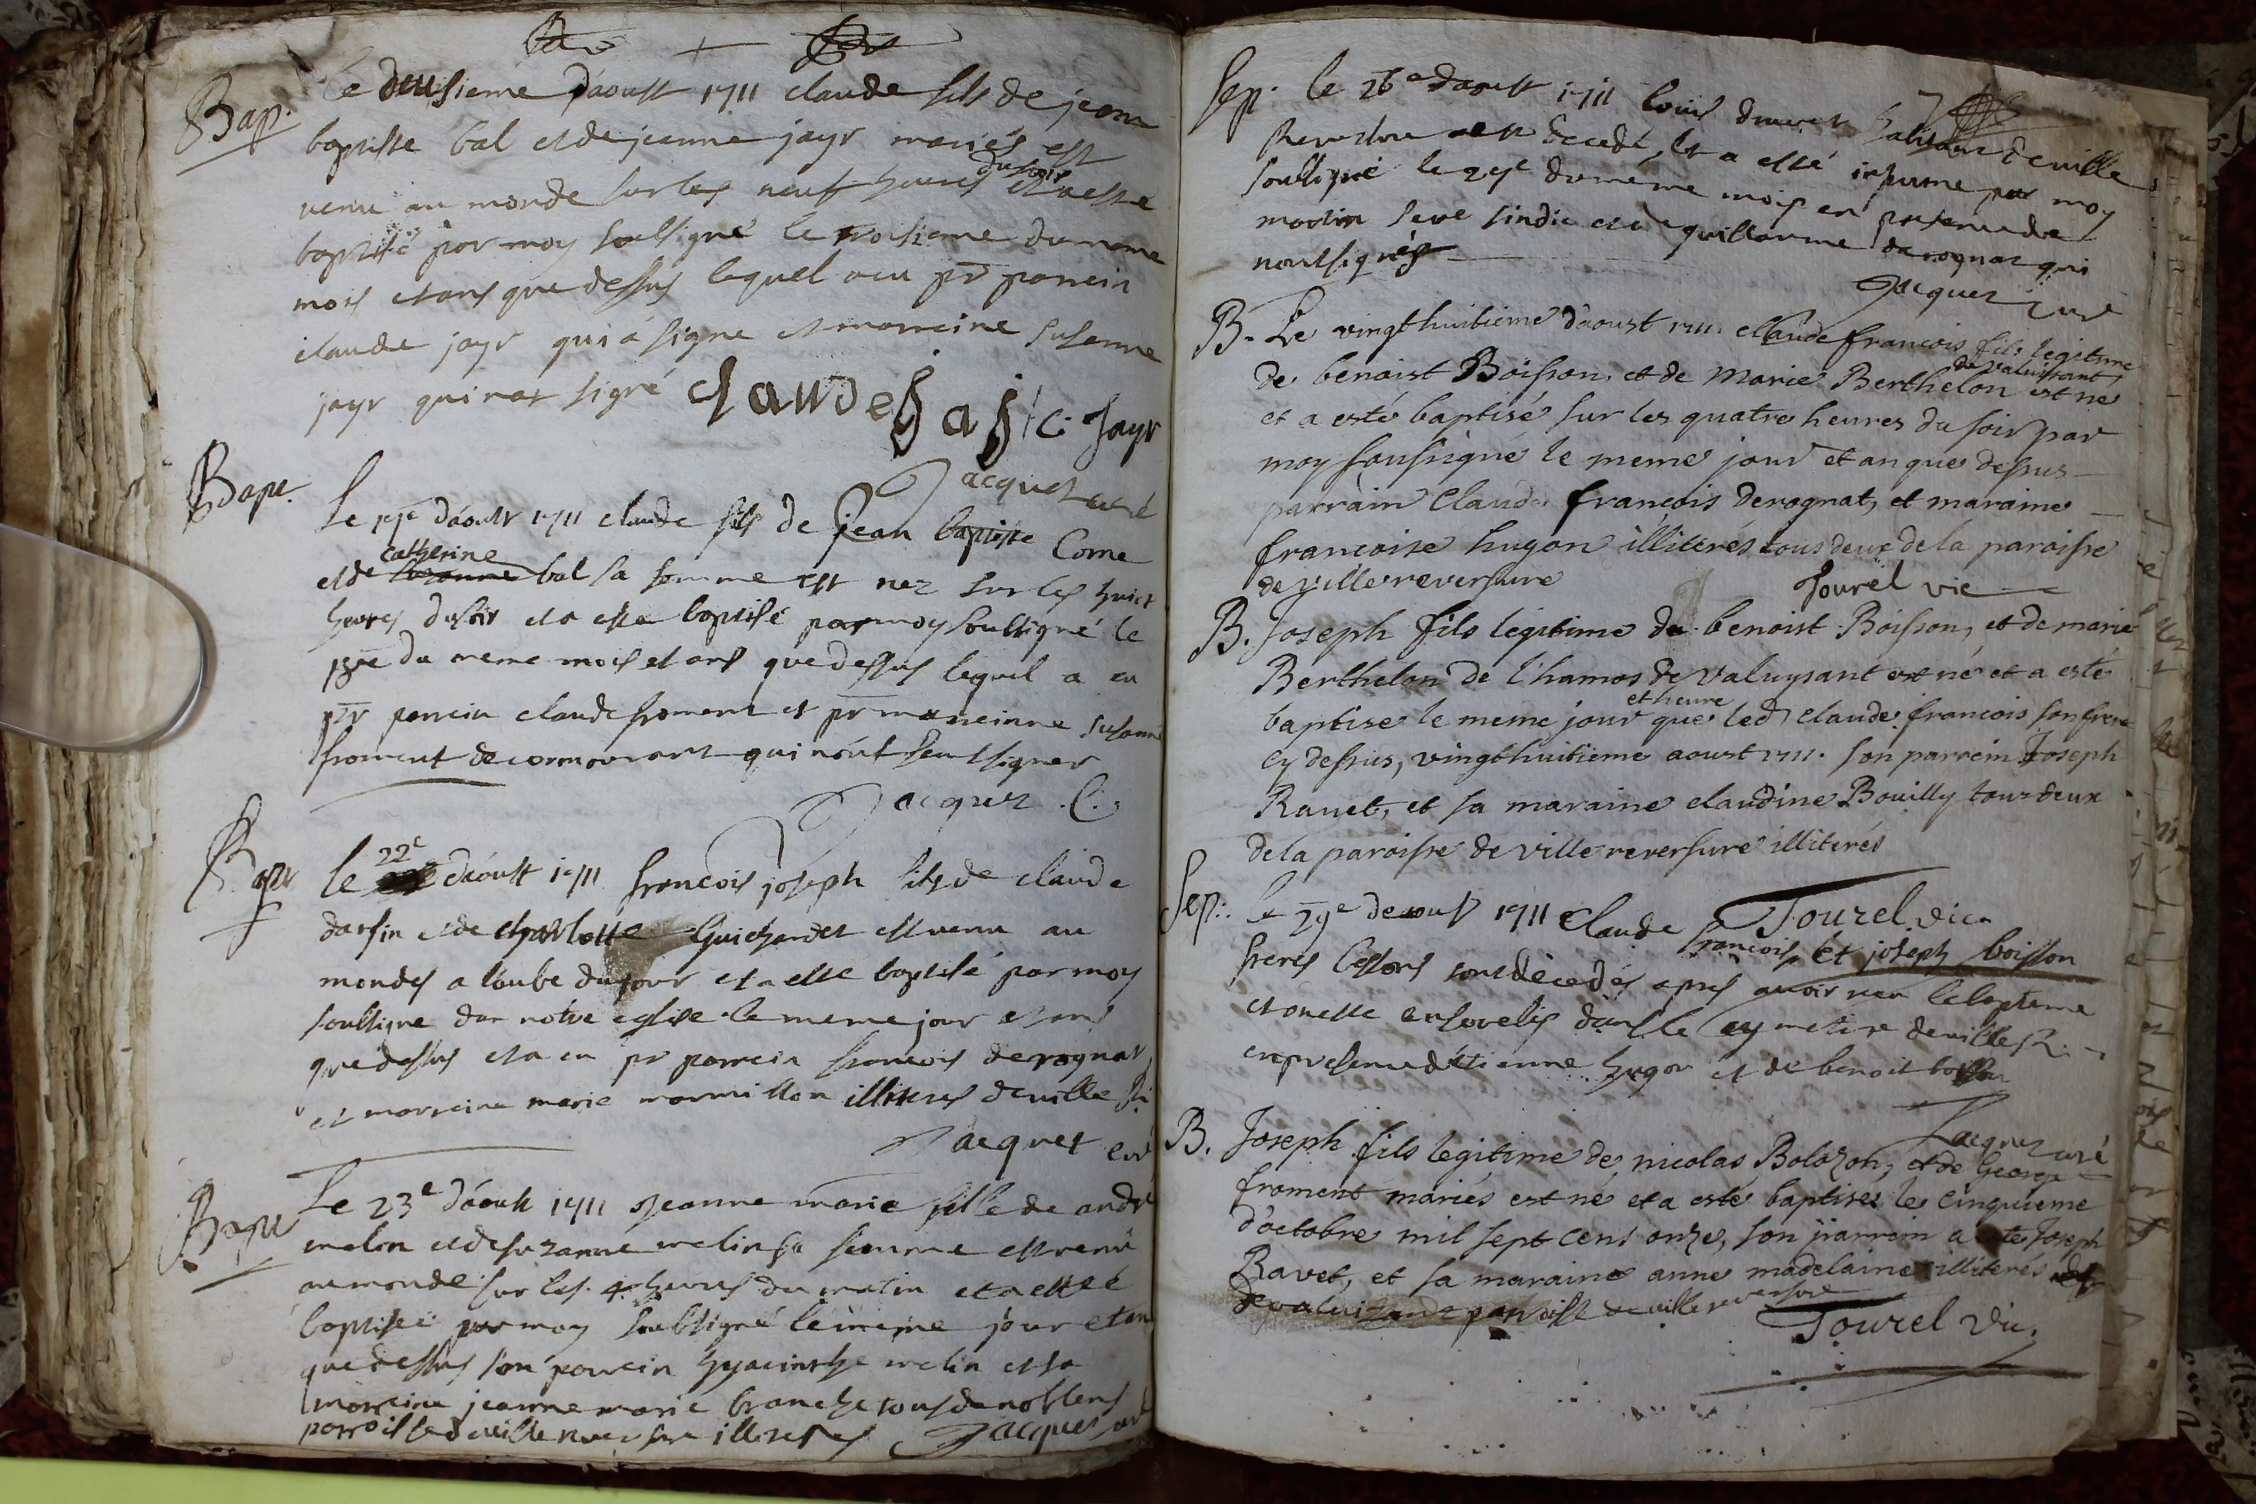 Bap. le deusieme daoust 1711 claude fils de jean
baptiste bal et de jeanne jayr mariés est
venu au monde sur les neuf heures du soir et a esté
baptisé par moy soussigné le troisieme du meme
mois et ans que dessus lequel a eu pr parrein
claude jayr qui a signe et marreine susanne
jayr qui na signé claude baj C. Jayr
Jacquet curé
Bapt. Le daoust 1711 claude fils de jean baptiste Come
et de catherine bal sa femme est nez sur les huict
heures du soir et a esté baptisé par moy soussigné le
du meme mois et ans que dessus lequel a eu
pr parrein claude froment et pr marreinne susanne
froment de cormourant qui nont sceu signer
Jacquet . C.
Bapt le 22e daoust 1711 francois joseph fils de claude
darfin et de charlotte Guichardet est venu au
mondes a laube du jour et a esté baptisé par moy
soussigne dan notre eglise le meme jour et ans
que dessus et a eu pr parrein francois derognat
et marreine marie marmillon illiteres de ville R
Jacquet curé
Bapt Le 23e daoust 1711 jeanne marie fille de andré
melin et de suzanne melin sa femme est venu
au monde sur les 4 heures du matin et a esté
baptisee par moy soubsigné le meme jour et an
que dessus son parrein hyacinthe melin et sa
marreine jeanne marie branche tous de noblens
parroisse de ville reversure illiteres Jacquet curé
Sep. le 26e daoust 1711 louis habitant de ville
Reversure est decedé, et a esté inhume par moy
soussigné le 27e du meme mois en presence de
martin seve sindic et de guillaume derognat qui
nont signés
Jacquet curé
B. Le vingt huitieme d'aoust 1711 Claude francois fils legitime
de benoist Boisson et de Marie Berthelon de valuysant est né
et a esté baptisé sur les quatre heures du soir par
moy soussigné le meme jour et an que dessus
parrain Claude francois derognat, et maraine
francoise hugon illiterés tous deux de la paroisse
de ville reversure Tourel vic
B. Joseph fils legitime de benoist Boisson, et de marie
Berthelon de l'hamos de Valuysant est né et a esté
baptise le meme jour et heure que led claude francois son frere
cy dessus, vingt huitieme aoust 1711. son parrein Joseph
Ravet, et sa maraine claudine Bouilly tous deux
de la paroisse de ville reversure illiterés
Tourel vic.
Sep. Le 29e de aoust 1711 Claude francois et joseph boisson
freres bessons sont decedés apres avoir receu le bapteme
et onesté ensevelis dans le cymetire de ville R.
en presence détienne hugon et de benoit boisson
Jacquet curé
B. Joseph fils legitime de nicolas Bolozon, et de George
froment mariés est né et a esté baptisé le cinquieme
d'octobre mil sept cent onze, son parrein a ete Joseph
Ravet, et sa maraine anne madelaine illiterés
de valuizant paroisse de ville reversure
Tourel vic.